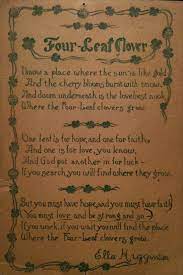 Four-Leaf Clover
I know a place where the sun is like gold
And the cherry blooms burst with snow,
And down underneath is the loveliest nook,
Where the Four-Leaf clovers grow.
One leaf is for hope, and one for faith,
And one is for love, you know,
And God put another in for luck—
If you search, you will find where they grow.
But you must have hope, and you must have faith
You must love and be strong and so—
If you work, if you wait you will find the place
Where the Four-Leaf clovers grow.
Ella Higginson